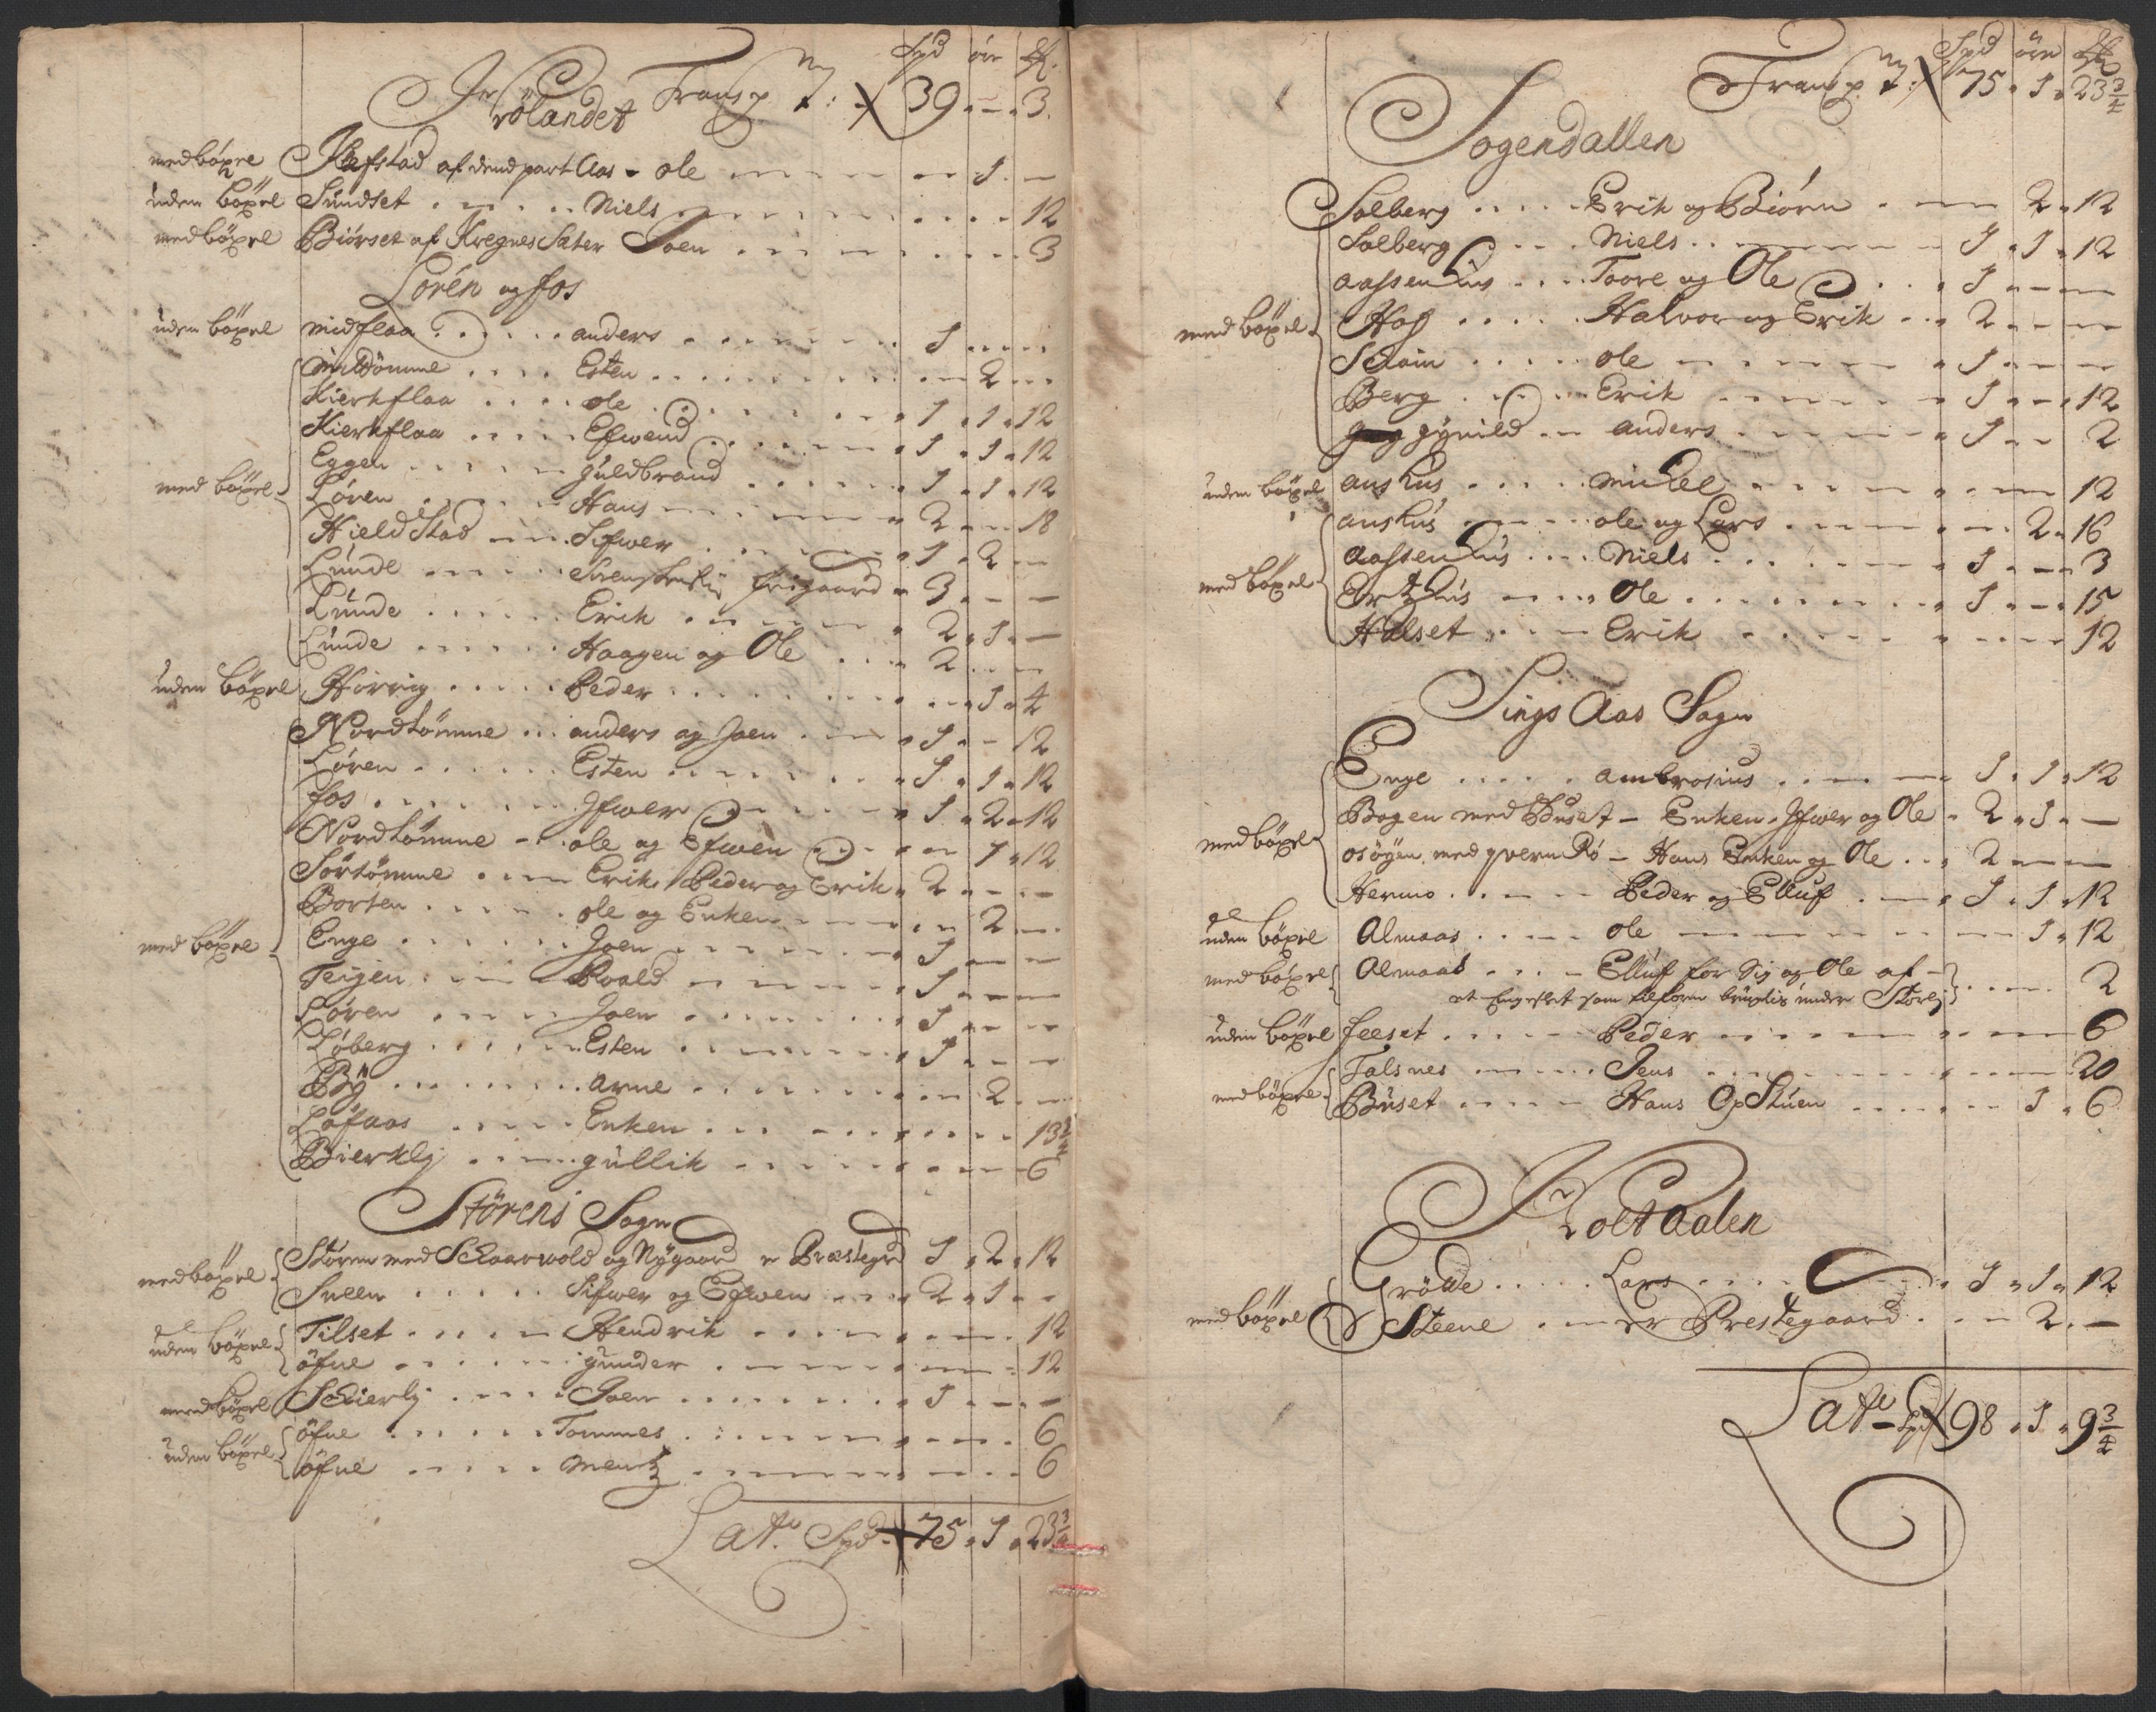 Spd öre
Transp t: 39 . - . 3.
Rolandet
med böxel Refstad af dend part Aas - ole 1 . -
uden böxel Sundset Niels 12
med böxel Biörset af Kregnes Sæter Joen 3
Loren og fos
uden böxel midflaa anders 1
midtömme Esten 2
Kierkflaa ole 1 . 1 . 12
Kierkflaa Efwend 1 . 1 . 12
Eggen guldbrand 1 . 1 . 12
med böxel Løren Hans 2 . - . 18
Hieldstad Sifwer 1 . 2
Lunde frigaard 3 . - . -
Lunde Erik 2 . 1 . -
Lunde Haagen og Ole 2
uden böxel Horrig Peder 1 . 4
Nordtömme anders og Joen 1 . - 12
Løren Esten 1 . 1 . 12
fos Ifwer 1 . 2 . 12
Nordtömme ole og Efwen 1 . 12
Sörtömme Erik, Peder og Erik 2 . - . -
Borten ole og Enken 2
med böxel Enge Joen 1
Teigen Roald 1
Søren Joen 1
Løberg Esten 1
Bÿ arne 2
Løfaas Enken 13 3/4
Bierklj gullik 6
Störens Sogn
med böxel Støren med Schaarvold og Nygaard er Præstegrd 1 . 2 . 12
Sneen Sifwer og Efwen 2 . 1
uden böxel Tilset Hendrik 12
öfne gunder 12
med böxel Schierlj Joen 1 . - . -
uden böxel öfne Tommes 6
öfne mentz 6
Late Spd 75 . 1 . 23 3/4
Spd öre
Transp t: 75 . 1 . 23 3/4
Sogendallen
Solberg Erik og Biörn 2 . 12
Solberg Niels 1 . 1 . 12
Aassenhus Toore og Ole 1
med böxel Hof Halvor og Erik 2
Schoin ole 1
Berg Erik 1 . - . 12
gynild anders 1 . - 2
uden böxel aushus michel 12
aushus ole og Lars 2 . 16
med böxel Aassenhus Niels 1 . - . 3
Ertzhus Ole 1 . - . 15
Halset Erik 12
Sings Aas Sogn
Enge ambrosius 1 . 1 . 12
Bogen med Buset - Enken, Ifwer og Ole 2 . 1 . -
med böxel osöyen med qvernRö - Hans Enken og Ole 2
Hermo Peder og Elluf 1 . 1 . 12
uden böxel Almaas ole 1 . 12
med böxel Almaas Elluf for Sig og Ole af
et Engeslet som tilforn brugtis under Storlj 2
uden böxel feeset Peder 6
med böxel Falsnes Jens 20
Buset Hans OpStuen 1 . 6
Holtaalen
med böxel Gröde Lars 1 . 1 . 12
Steene er Prestegaard 2 . -
Late Spd 98 . 1 . 9 3/4